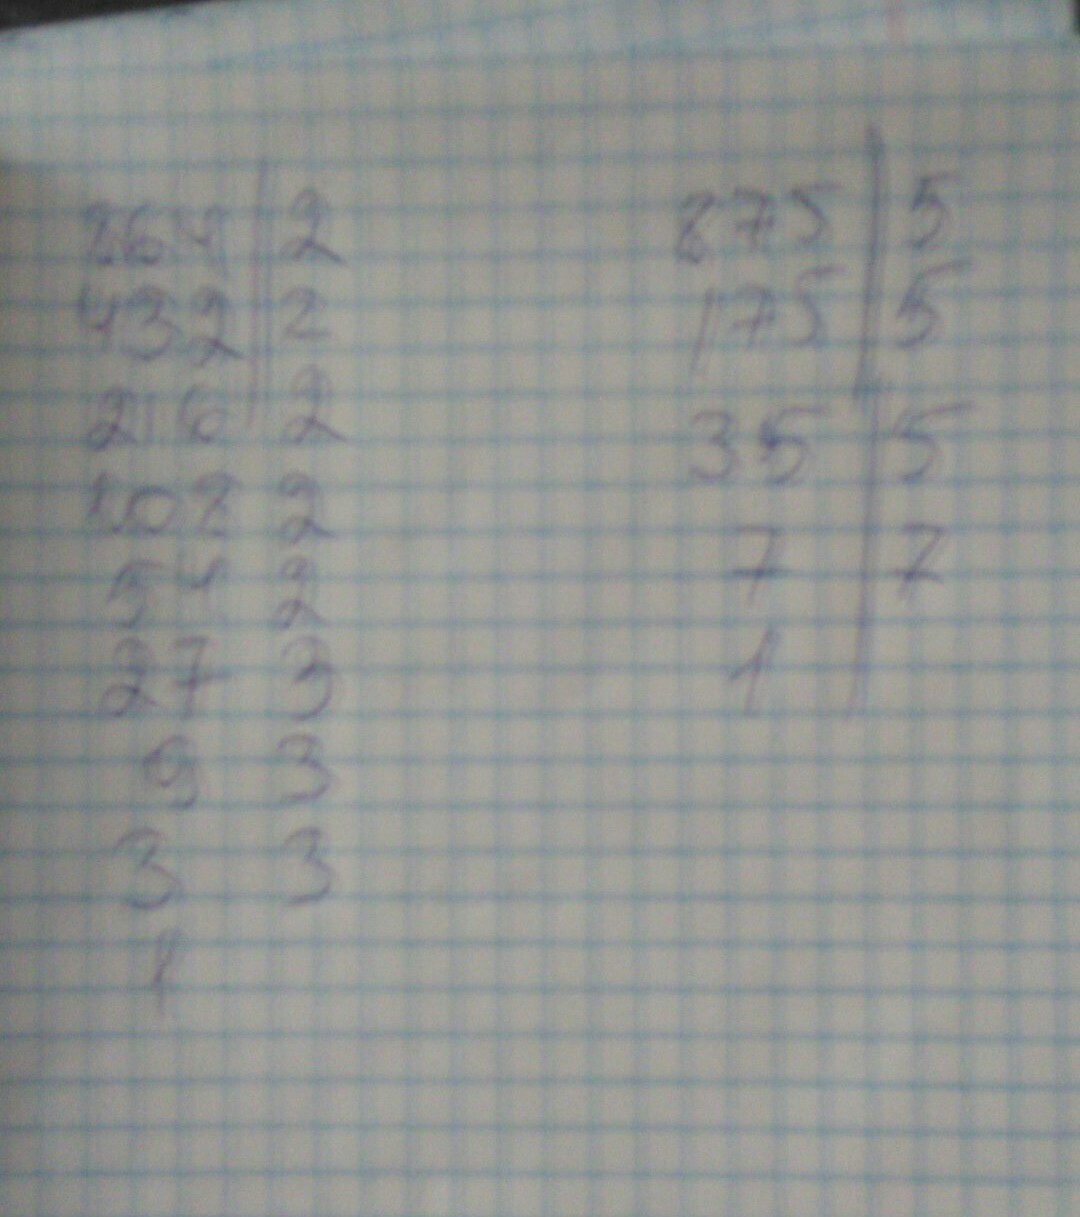 864 | 2
432 | 2
216 | 2
108 2
54 2
27 3
9 3
3 3
1
875 | 5
175 | 5
35 | 5
7 | 7
1